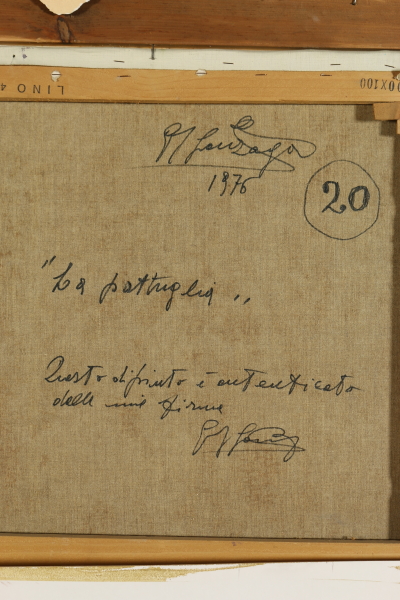 LINO 4
00X100
P M Gonzaga
1976
20
"La pattuglia„
Questo dipinto è autenticato
dalla mia firma